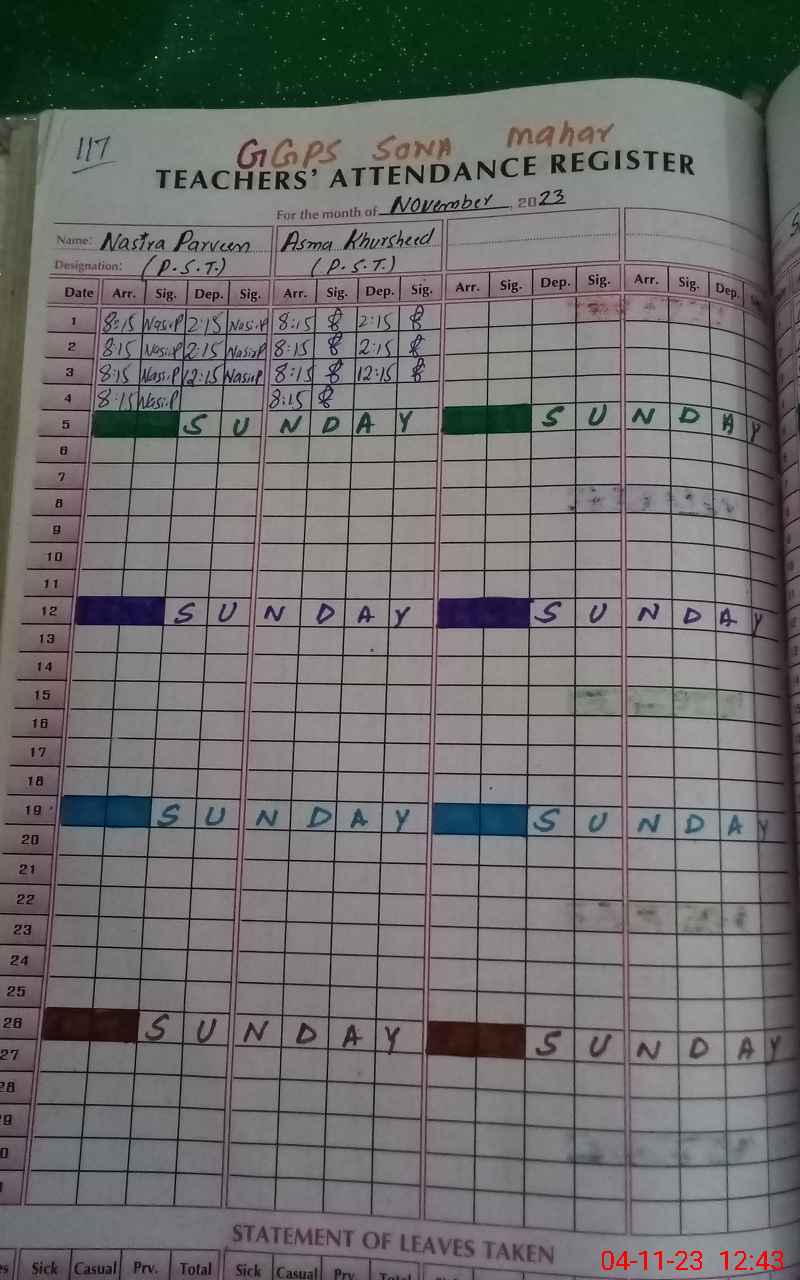 117
GGPS SONA mahar
TEACHERS' ATTENDANCE REGISTER
For the month of November, 2023
Name: Nasira Parveen Asma Khursheed
Designation: (P.S.T.) (P.S.T.)
Date Arr. Sig. Dep. Sig. Arr. Sig. Dep. Sig. Arr. Sig. Dep. Sig. Arr. Sig. Dep.
1 8:15 Nasir.P 2:15 Nasir.P 8:15 2:15
2 8:15 Nasir.P 2:15 Nasir.P 8:15 2:15
3 8:15 Nasir.P 12:15 Nasir.P 8:15 12:15
4 8:15 Nasir.P 8:15
5 SUNDAY SUNDAY
6
7
8
9
10
11
12 SUNDAY SUNDAY
13
14
15
16
17
18
19 SUNDAY SUNDAY
20
21
22
23
24
25
26 SUNDAY SUNDAY
27
28
9
0
STATEMENT OF LEAVES TAKEN
Sick Casual Prv. Total Sick Casual Prv. Total
04-11-23 12:43